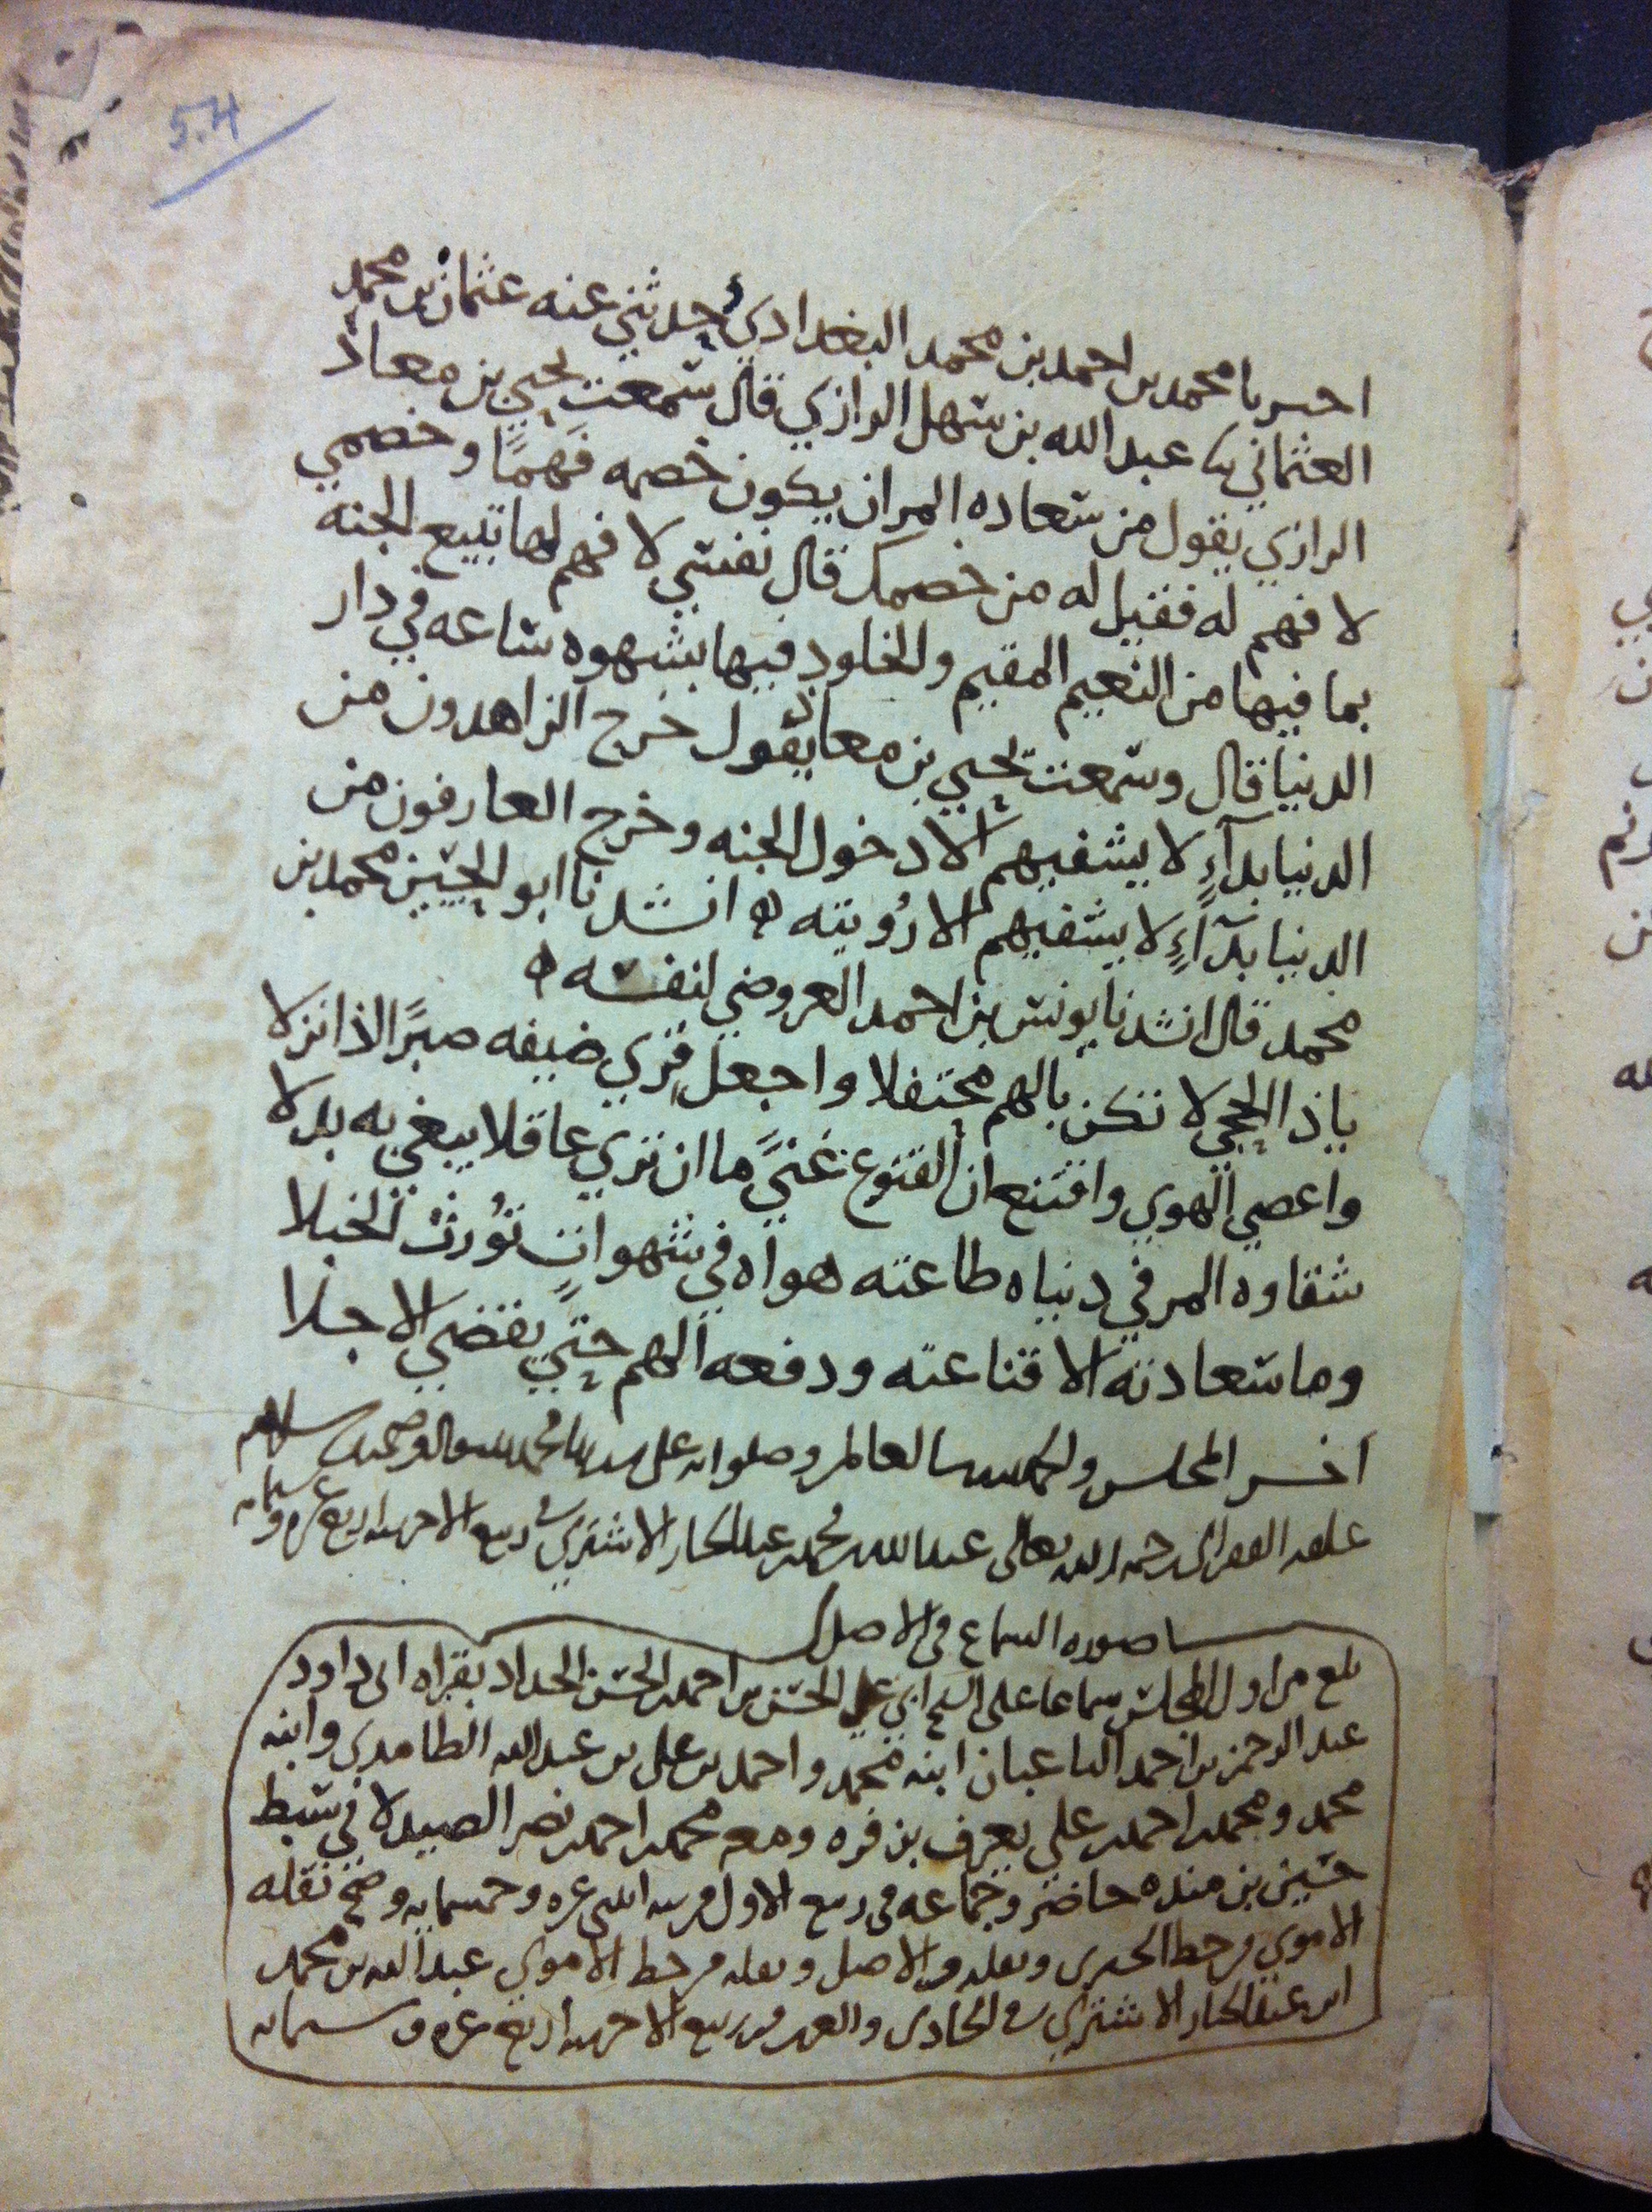 5.4
اخبرنا محمد بن احمد بن محمد البغدادي حدثني عنه عثمان بن محمد
العثماني ثنا عبد الله بن سهل الرازي قال سمعت يحيي بن معاذ
الرازي يقول من سعاده المر ان يكون خصمه فهمًا وخصمي
لا فهم له فقيل له من خصمك قال نفسي لا فهم لها تبيع الجنه
بما فيها من النعيم المقيم والخلود فيها بشهوه ساعه في دار
الدنيا قال وسمعت يحيي بن معاذ يقول خرج الزاهدون من
الدنيا بدآءٍ لا يشفيهم الا دخول الجنه وخرج العارفون من
الدنيا بدآءٍ لا يشفيهم الا رُويته ه انشدنا ابو الحسين محمد بن
محمد قال انشدنا يونس بن احمد العروضي لنفسه ه
ياذا الحجي لا تكن بالهم محتفلا واجعل قري ضيفه صبرًا اذا نزلا
واعصي الهوي واقتنع ان القنوع غنيً ما ان تري عاقلا يبغي به بدلا
شقاوه المر في دنياه طاعته هواه في شهواتٍ تُورث الخبلا
وما سعادته الا قناعته ودفعه الهم حتي يقضي الاجلا
اخر المجلس والحمد لله رب العالمين وصلواته على سيدنا محمد واله وصحبه وسلامه
علقه الفقير الى رحمه الله تعالى عبد الله بن محمد بن عبد الجبار الاشتري في ربيع الاخر سنه اربع عشره وستمايه
صوره السماع في الاصل
بلغ من اول المجلس سماعا على الشيخ ابي علي الحسن بن احمد بن الحسن الحداد بقراه ابي داود
عبد الرحمن بن احمد الباغبان ابنه محمد واحمد بن علي بن عبد الله الطامدي وابنه
محمد ومحمد بن احمد بن علي يعرف بن فره ومعه محمد بن احمد بن نصر الصيدلاني سبط
حسين بن منده حاضر وجماعه في ربيع الاول من سنه اثني عشره وخمسمايه وصح نقله
الاموي من خط الحيري ونقله من الاصل ونقله من خط الاموي عبد الله بن محمد
ابن عبد الجبار الاشتري في الحادي والعشرين من ربيع الاخر سنه اربع عشره وستمايه